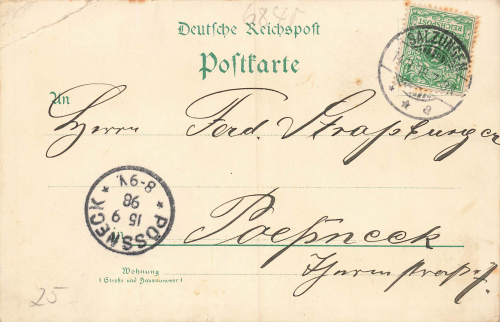 6845
Deutsche Reichspost
Postkarte
SALZUNGEN
* * a
REICHSPOST
An
Herrn Ferd. Straßburger
PÖSSNECK
15 9
98
8-9V.
*
in Poeßneck
Wohnung
(Straße und Hausnummer)
25-